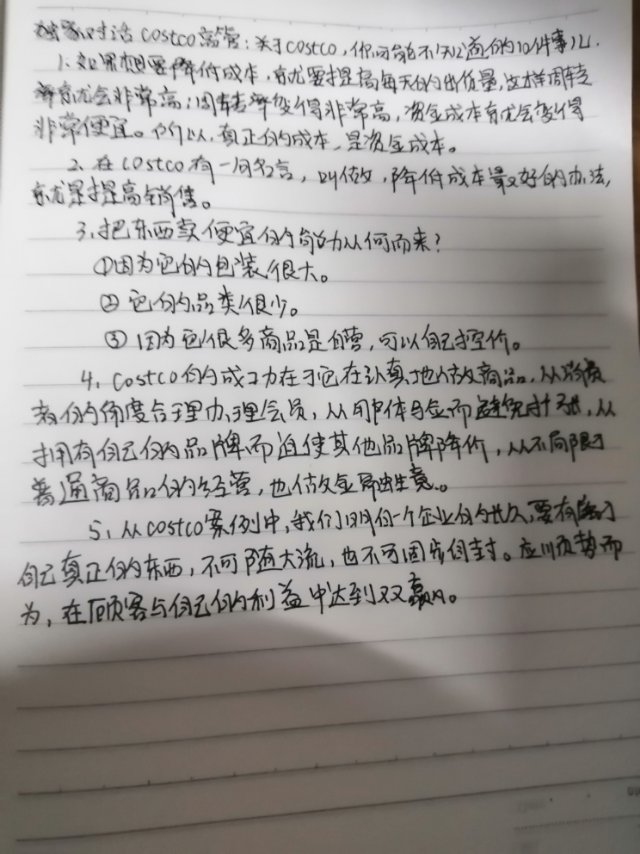 独家对话costco高管:关于costco,你可能不知道的10件事儿.
1.如果想要降低成本,就要提高每天的出货量,这样周转
率就会非常高;周转率变得非常高,资金成本就会变得
非常便宜。所以,真正的成本,是资金成本。
2.在costco有一句名言,叫做,降低成本最好的办法,
就是提高销售。
3.把东西卖便宜的能力从何而来?
①因为它的包装很大。
②它的品类很少。
③因为它很多商品是自营,可以自己控价。
4.costco的成功在于它在认真地做商品,从消费
者的角度合理办理会员,从用户体验而避免扩张,从
拥有自己的品牌而迫使其他品牌降价,从不局限于
普通商品的经营,也做金融生意。
5,从costco案例中,我们明白一个企业的长久,要有
自己真正的东西,不可随大流,也不可固步自封。应顺势而
为,在顾客与自己的利益中达到双赢。